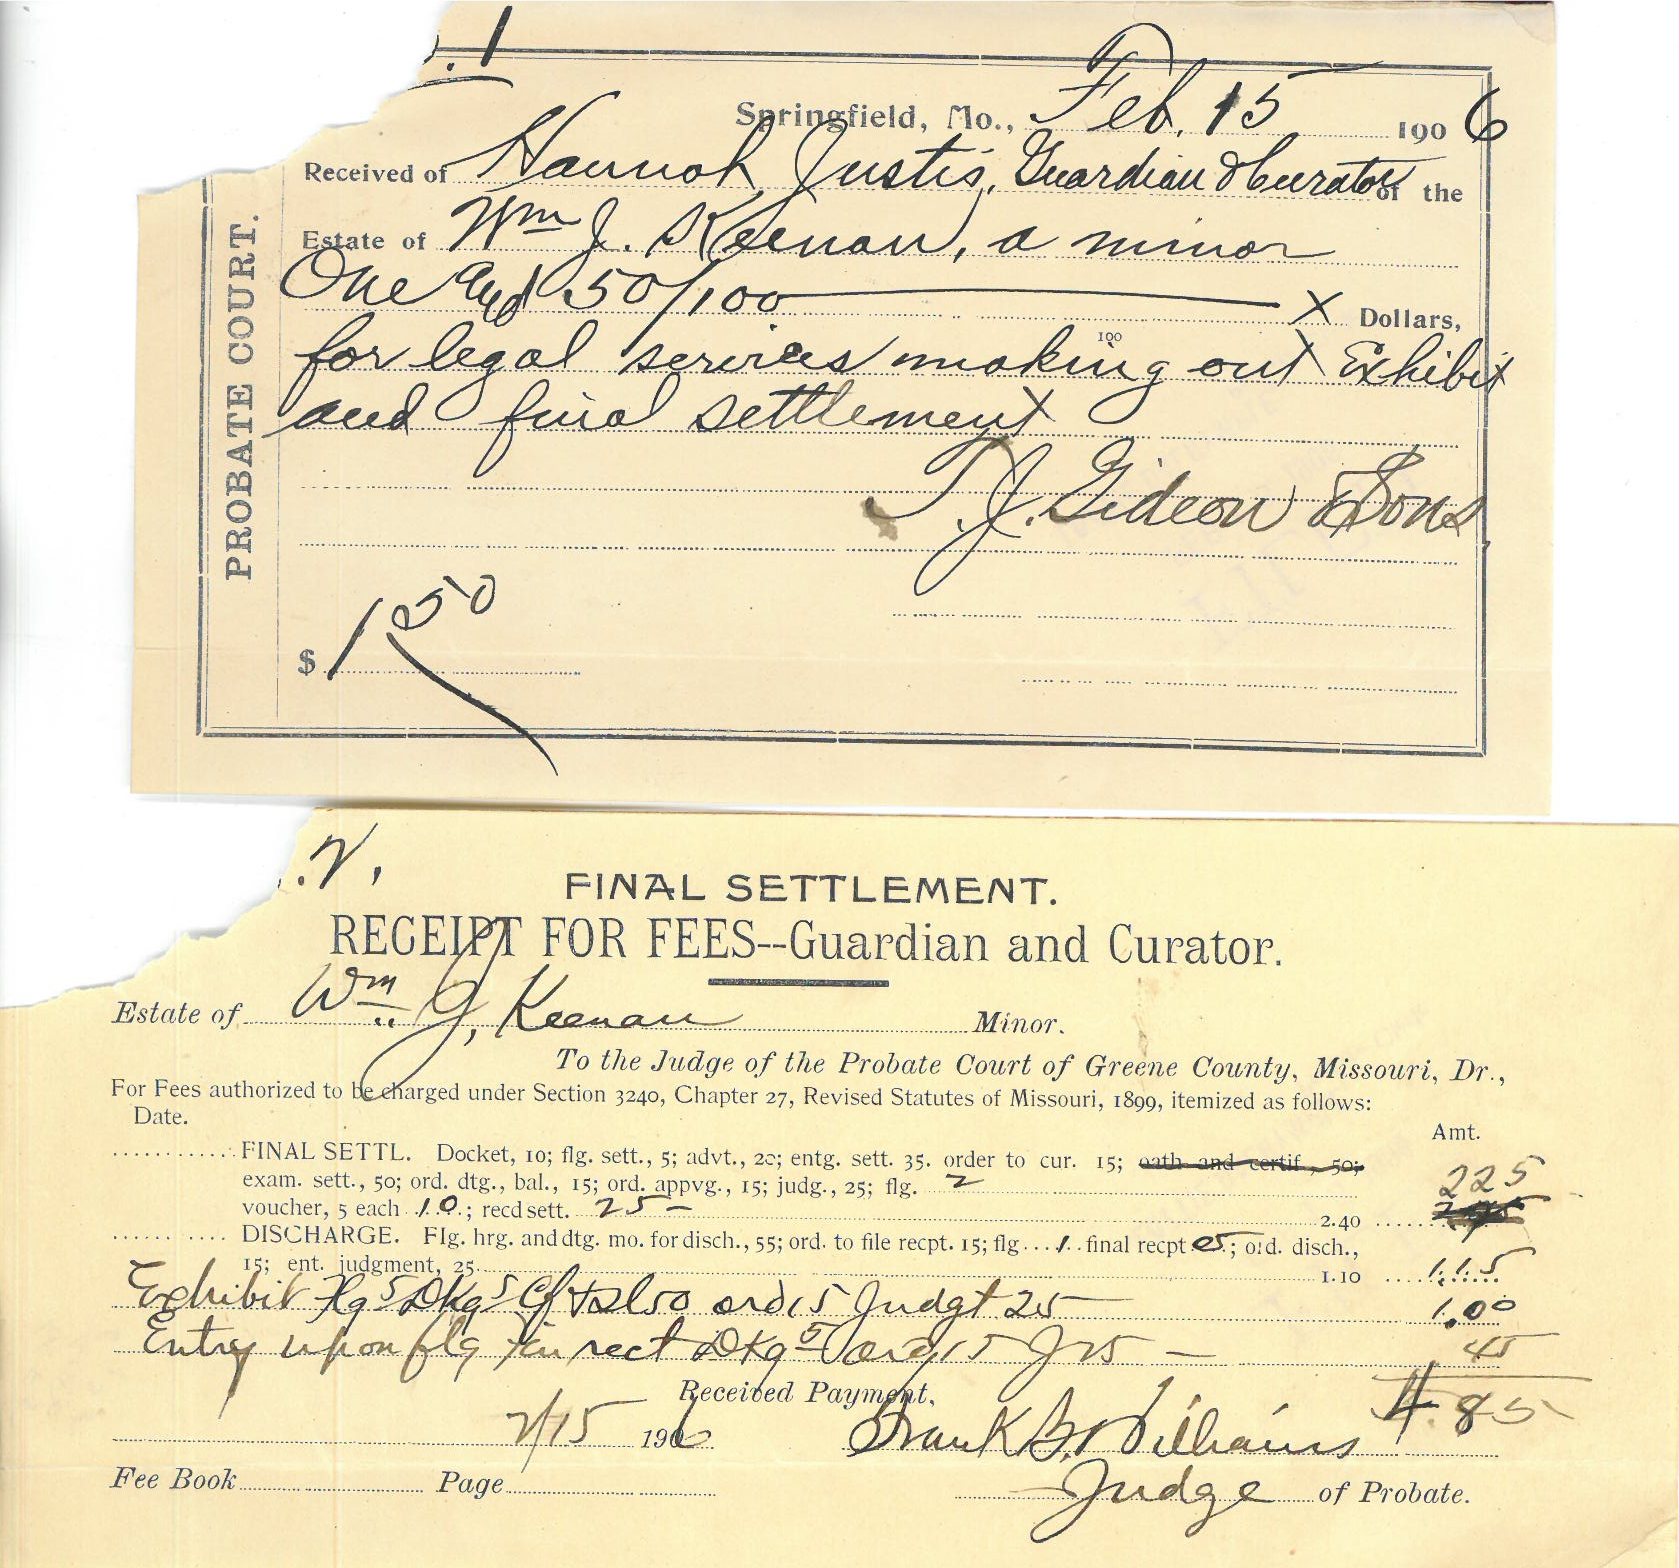 . 1
Springfield, Mo., Feb. 15 1906
Received of Hannah Justis, Guardian & Curator of the
Estate of Wm J. Keenan, a minor
One and 50/100 X Dollars,
100
for legal services making out Exhibit
and final settlement
T. J. Gideon & Sons
$ 1 50
PROBATE COURT.
. 2,
FINAL SETTLEMENT.
RECEIPT FOR FEES--Guardian and Curator.
Estate of Wm. J. Keenan Minor.
To the Judge of the Probate Court of Greene County, Missouri, Dr.,
For Fees authorized to be charged under Section 3240, Chapter 27, Revised Statutes of Missouri, 1899, itemized as follows:
Date.
Amt.
FINAL SETTL. Docket, 10; flg. sett., 5; advt., 20; entg. sett. 35. order to cur. 15; oath and certif., 50;
exam. sett., 50; ord. dtg., bal., 15; ord. appvg., 15; judg., 25; flg. 2 225
voucher, 5 each 10; recd sett. 25 — 2.40
DISCHARGE. Flg. hrg. and dtg. mo. for disch., 55; ord. to file recpt. 15; flg 1 final recpt 05; ord. disch.,
15; ent. judgment, 25 1.10 1.15
Exhibit flg 5 Dkg 5 50 ord 15 Judgt 25 1.00
Entry upon flg rect Dkg 5 ord 15 J 25 — 45
Received Payment, 4.85
2/15 1906 Frank B. Williams
Fee Book Page Judge of Probate.